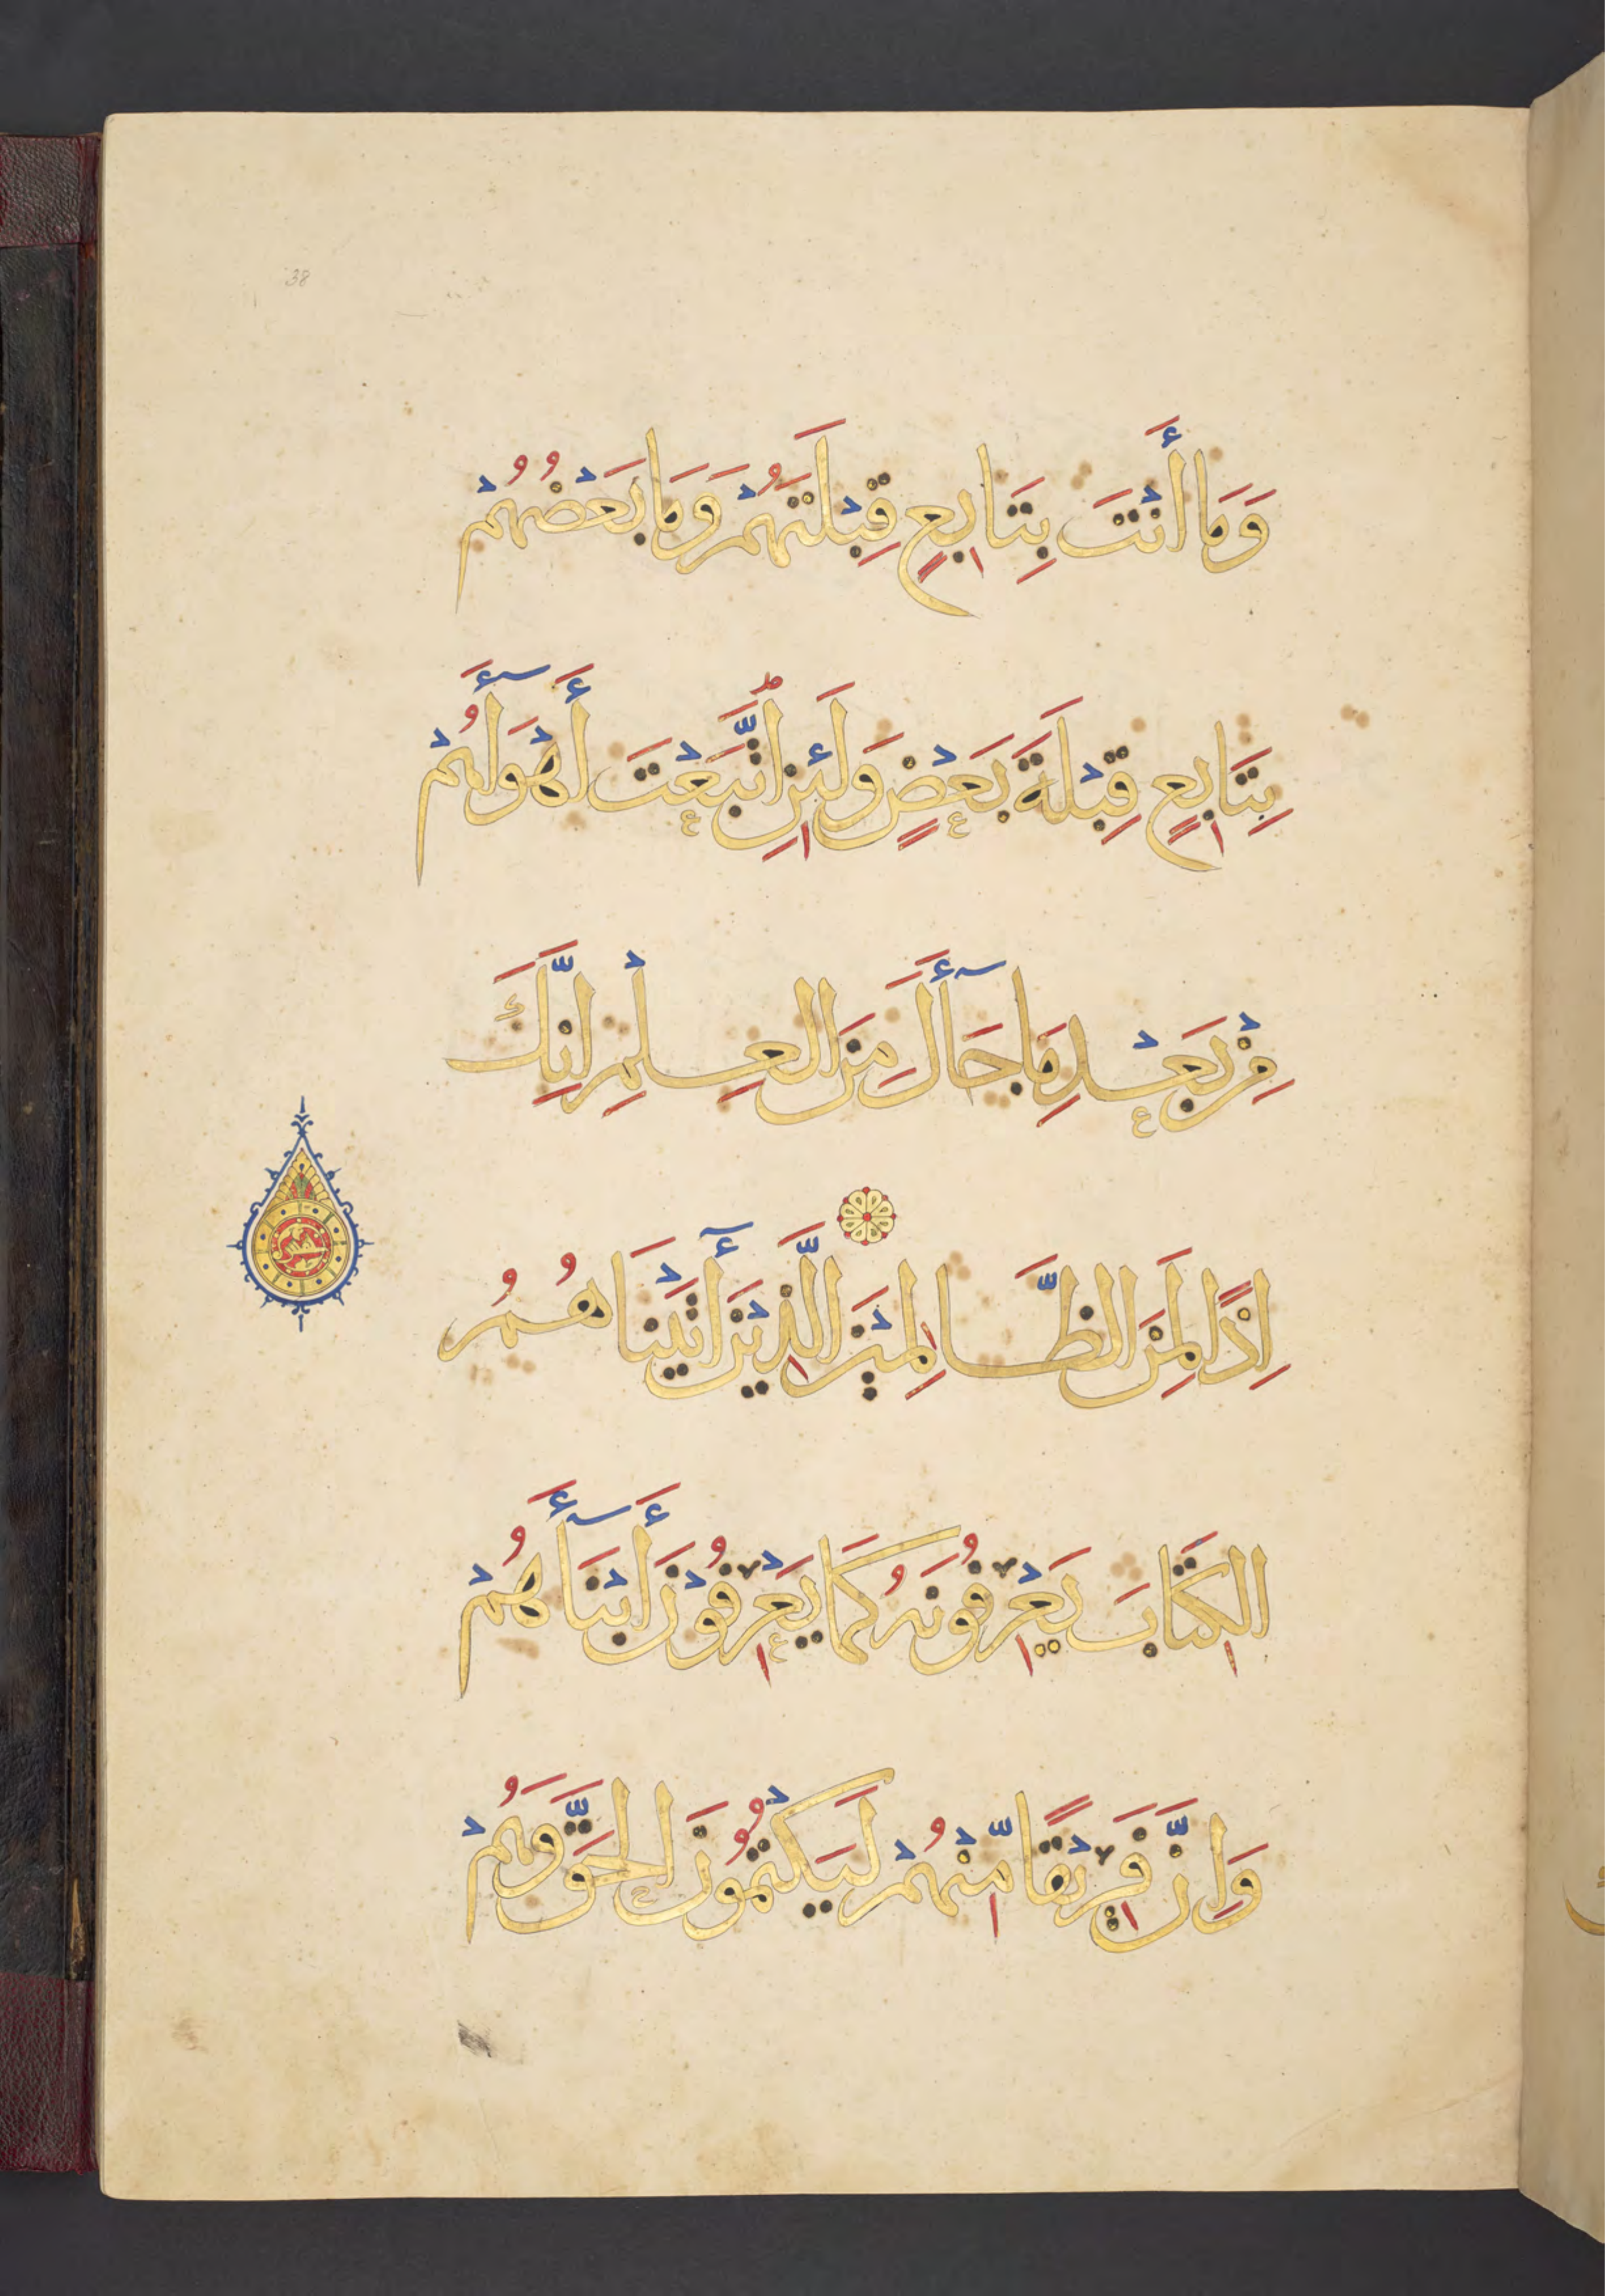 38
وَمَا أَنْتَ بِتَابِعٍ قِبْلَتَهُمْ وَمَا بَعْضُهُمْ
بِتَابِعٍ قِبْلَةَ بَعْضٍ وَلَئِنِ اتَّبَعْتَ أَهْوَآءَهُمْ
مِنْ بَعْدِ مَا جَآءَكَ مِنَ الْعِلْمِ اِنَّكَ
اِذًا لَمِنَ الظَّالِمِيْنَ الَّذِيْنَ أٰتَيْنَاهُمُ
الكِتَابَ يَعْرِفُونَهُ كَمَا يَعْرِفُوْنَ أَبْنَآءَهُمْ
وَاِنَّ فَرِيْقًا مِّنْهُمْ لَيَكْتُمُونَ الحَقَّ وَهُمْ